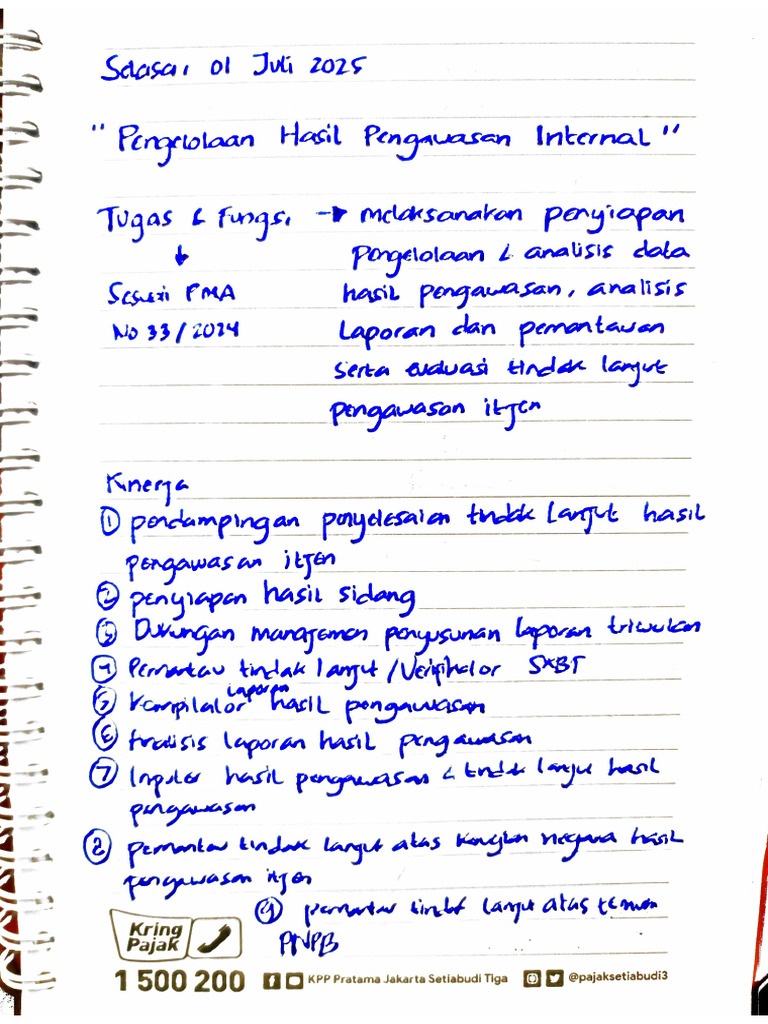 Selasa, 01 Juli 2025
"Pengelolaan Hasil Pengawasan Internal"
Tugas & Fungsi → Melaksanakan penyiapan
↓ pengelolaan & analisis data
Sesuai PMA hasil pengawasan, analisis
No 33/2024 Laporan dan pemantauan
serta evaluasi tindak lanjut
pengawasan itjen
Kinerja
① pendampingan penyelesaian tindak lanjut hasil
pengawasan itjen
② penyiapan hasil sidang
③ Dukungan manajemen penyusunan laporan triwulan
④ Pemantau tindak langut / Verifikator
laporan
⑤ Kompilator hasil pengawasan
⑥ Analisis laporan hasil pengawasan
⑦ Inputer hasil pengawasan & tindak lanjut hasil
pengawasan
⑧ pemantau tindak langut atas negara hasil
pengawasan itjen
⑨ pemantau tindak langut atas temuan
PNPB
Kring
Pajak
1 500 200 KPP Pratama Jakarta Setiabudi Tiga @pajaksetiabudi3